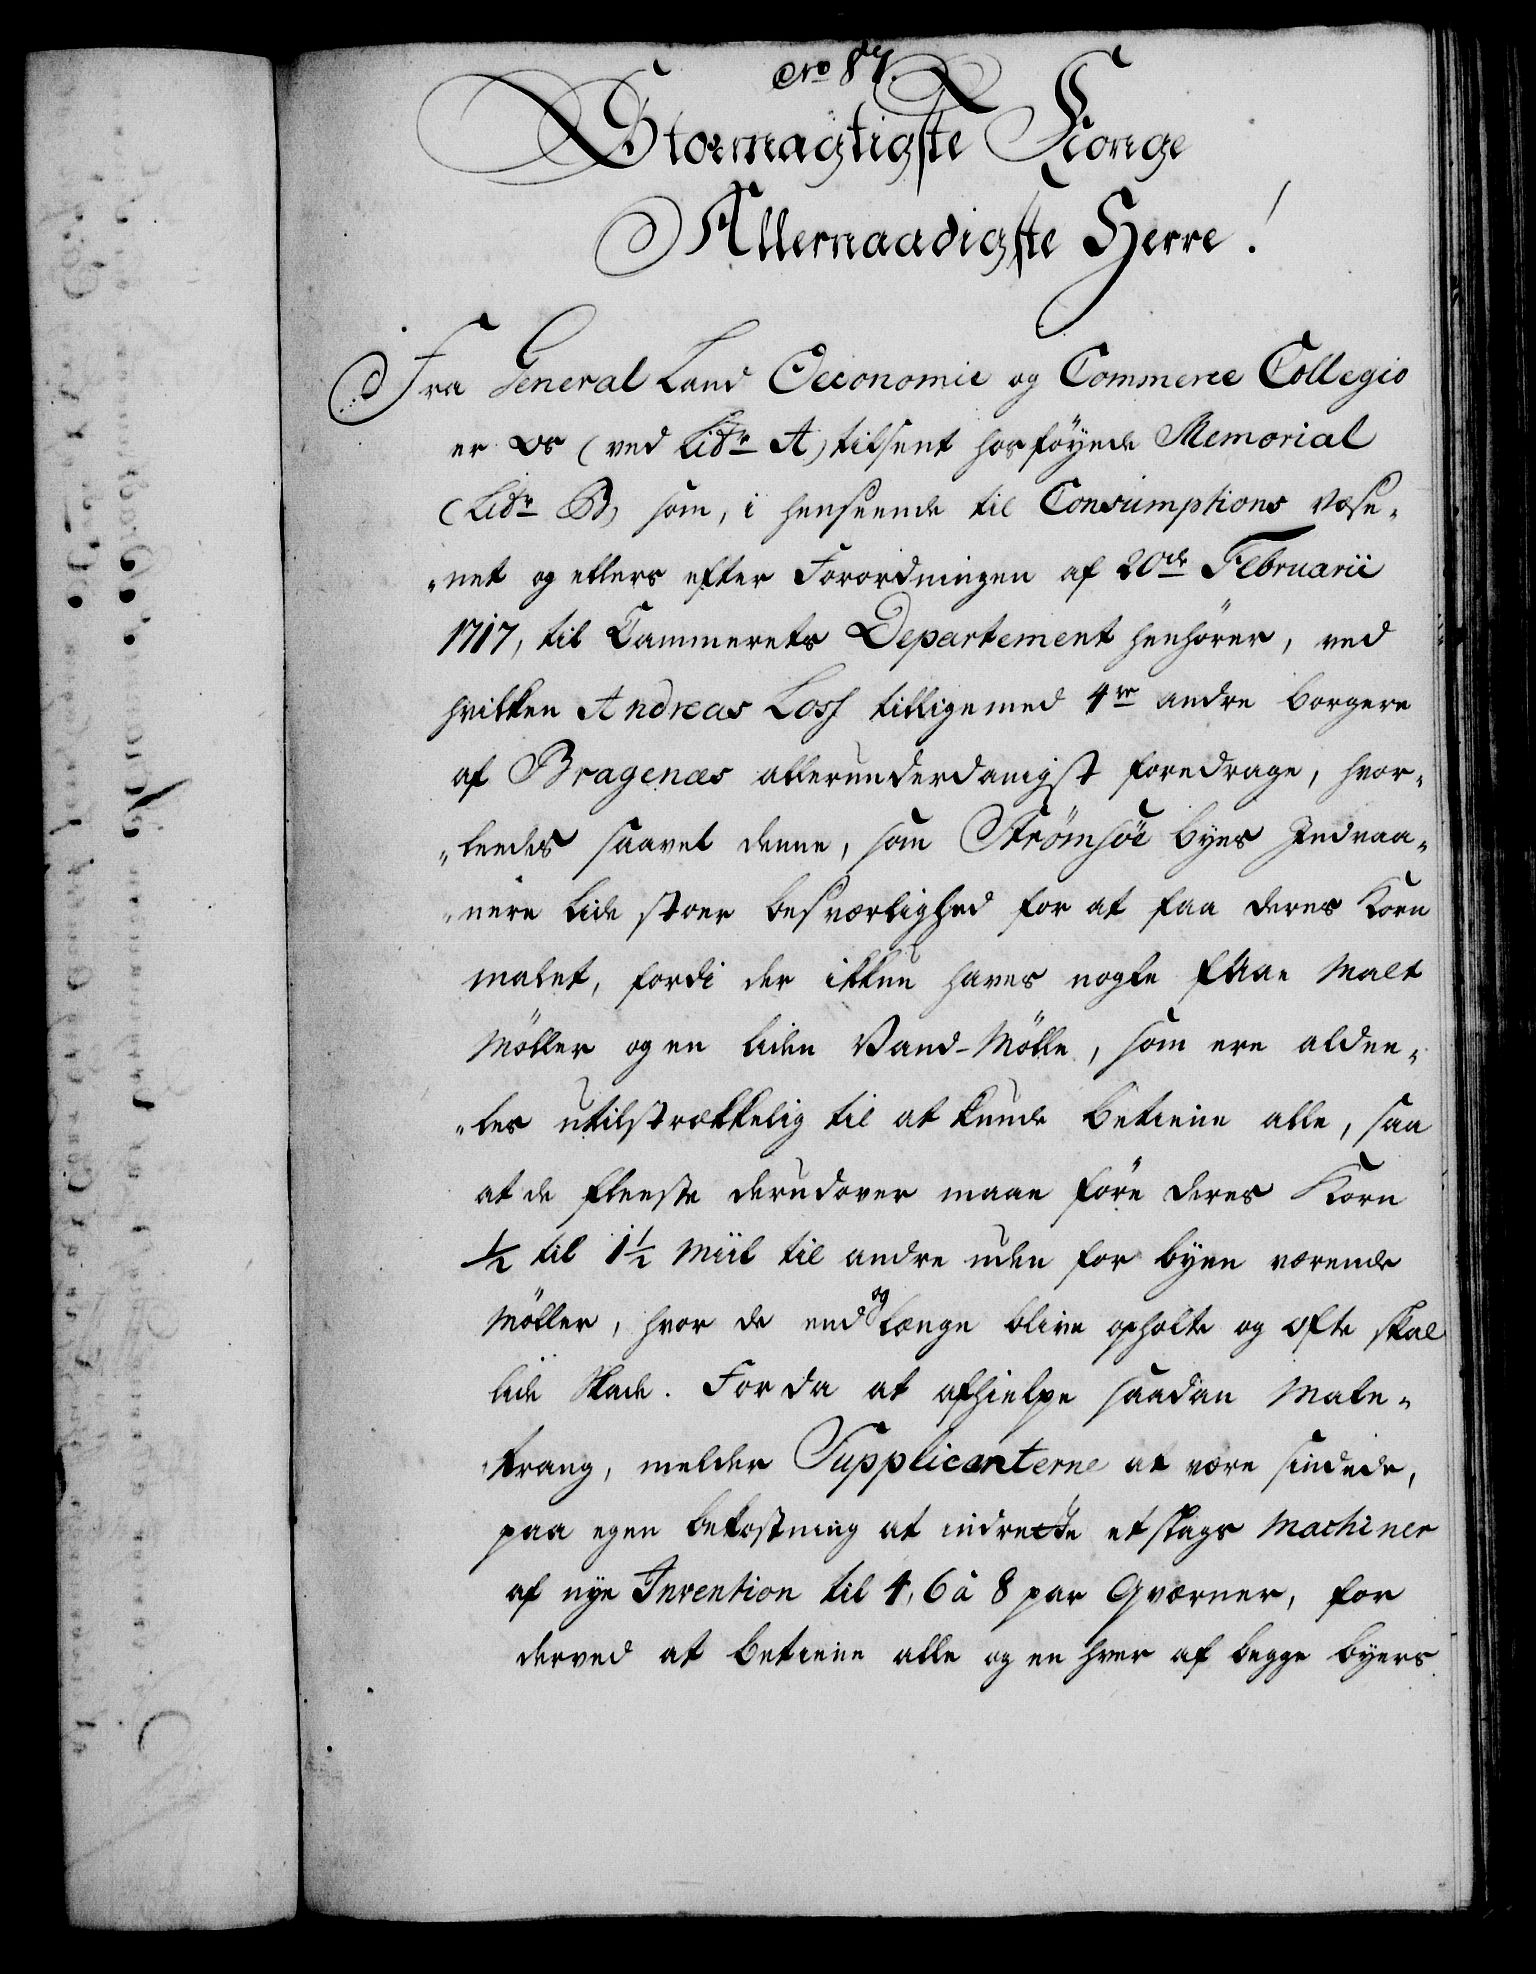 No 87.
Stormægtigste Konge
Allernaadigste Herre!
Fra General Land Oeconomie og Commerce Collegio
er os (ved Litr. A) tilsent hosföyede Memorial
(Litr. B) som, i henseende til Consumptions Væse„
„net og ellers efter Forordningen af 20de Februarii
1717, til Cammerets Departement henhörer, ved
hvilken Andreas Loss tilligemed 4re andre borgere
af Bragenæs allerunderdanigst foredrage, hvor„
„leedes saavel denne, som Strömsöe byes Indvaa„
„nere lide stoer besværlighed for at faa deres Korn
malet, fordi der ikkun haves nogle faae Malt
Möller og en liden Vand-Mölle, som ere aldee„
„les utilstrækkelig til at kunde betiene alle, saa
at de fleeste derudover maae före deres Korn
½ til 1½ Miil til andre uden for byen værende
Möller, hvor de end og længe blive opholte og ofte skal
lide Skade. For da at afhielpe saadan Male„
„trang, melder Supplicanterne at være sindede,
paa egen bekostning at indrette et slags Machiner
af nye Invention til 4, 6 à 8 par Qværner, for
derved at betiene alle og en hver af begge byers